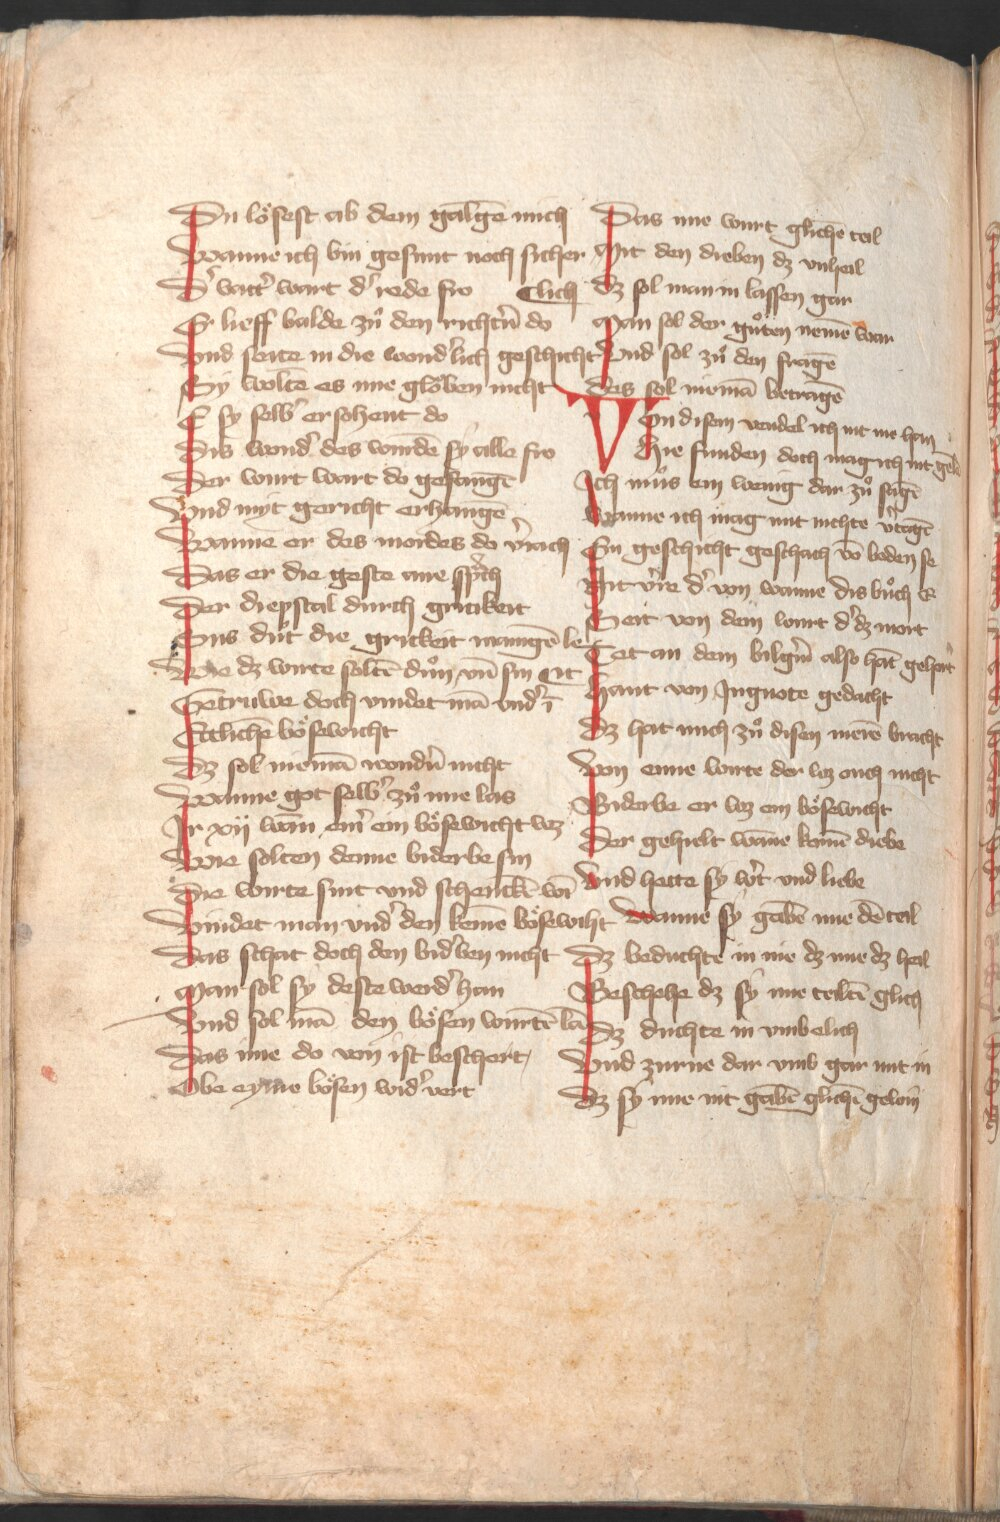 Du lösest ab dem galgē mich
Wanne ich bin gesunt noch sicher
Dˀ vattˀ wart dˀ rede fro lich
Er lieff balde zuͦ den richtˀn do
Vnd seite in die wondˀlich geschicht
Sÿ woltē es nie glöben nicht
E sy selbˀ ersohent do
Dis wondˀ des wurdē sÿ alle fro
Der wirt wart do gefangē
Vnd myt gericht erhangē
Wanne er des mordes do vˀiach
Das er die geste ane sprˀch
Der diepstal durch gritikeit
Sus duͤt die gritikeit manigē leit
Wie dz wirte soltē duͦn vn̄ sin
Getruwe doch vindet mā vndˀ ī
Ettlichē bösewicht
Dz sol niemā wondˀn nicht
Wanne got selbˀ zuͦ ime las
Ir xij wān einˀ ein bösewicht wz
Wie solten denne biderbe sin
Die wirte sint vnd schenckē wī
Vindet man vndˀ den keinē bösewiht
Das schat doch den bidˀben nicht
Man sol sÿ deste werdˀ han
Vnd sol mā den bösen wirtē lā
Das ime do von ist beschert
Obe eyme bösen widˀ vert
Das ime wirt glichē teil
Mit den dieben dz vnheil
Dz sol man in lassen gar
Man sol der guͦten nemē war
Vnd sol zuͦ den fragē
Des sol niemā betragē
Von disem vendel ich nit me han
Hie funden doch mag ich nit gelā
Ich muͦs ein wenig dar zuͦ sagē
Wanne ich mag mit nichte vˀtragē
Ein geschicht geschach vō boden se
Mit vˀre dˀ von wanne dis buͦch E
Seit von dem wirt dˀ dz mort
Tet an dem bilgˀin also hāt gehört
Hant von Ingnote gedacht
Dz hat mich zuͦ disen merē bracht
Von eime wirte der wz ouch nicht
Biderbe er wz ein bösewicht
Der gehielt wanne komē diebe
Vnd hette sÿ wˀt vnd liebe
Wanne sÿ gabē ime dē teil
Dz beduchte in nie dz ime dz heil
Beschehe dz sÿ ime teiltē glich
Dz duchte in vmbelich
Vnd zurne dar vmb gar mit in
Dz sÿ ime nit gabē glichē gewin